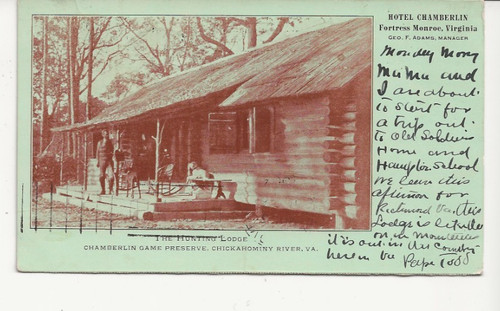 HOTEL CHAMBERLIN
Fortress Monroe, Virginia
GEO. F. ADAMS, MANAGER
Monday Morng
Mama and
I are about
to start for
a trip out
to Old Soldiers
Home and
Hampton School
we leave this
afternoon for
Richmond Va. this
Lodge is
on
it is out in the Country
here in Va
Papa
THE HUNTING LODGE
CHAMBERLIN GAME PRESERVE, CHICKAHOMINY RIVER, VA.